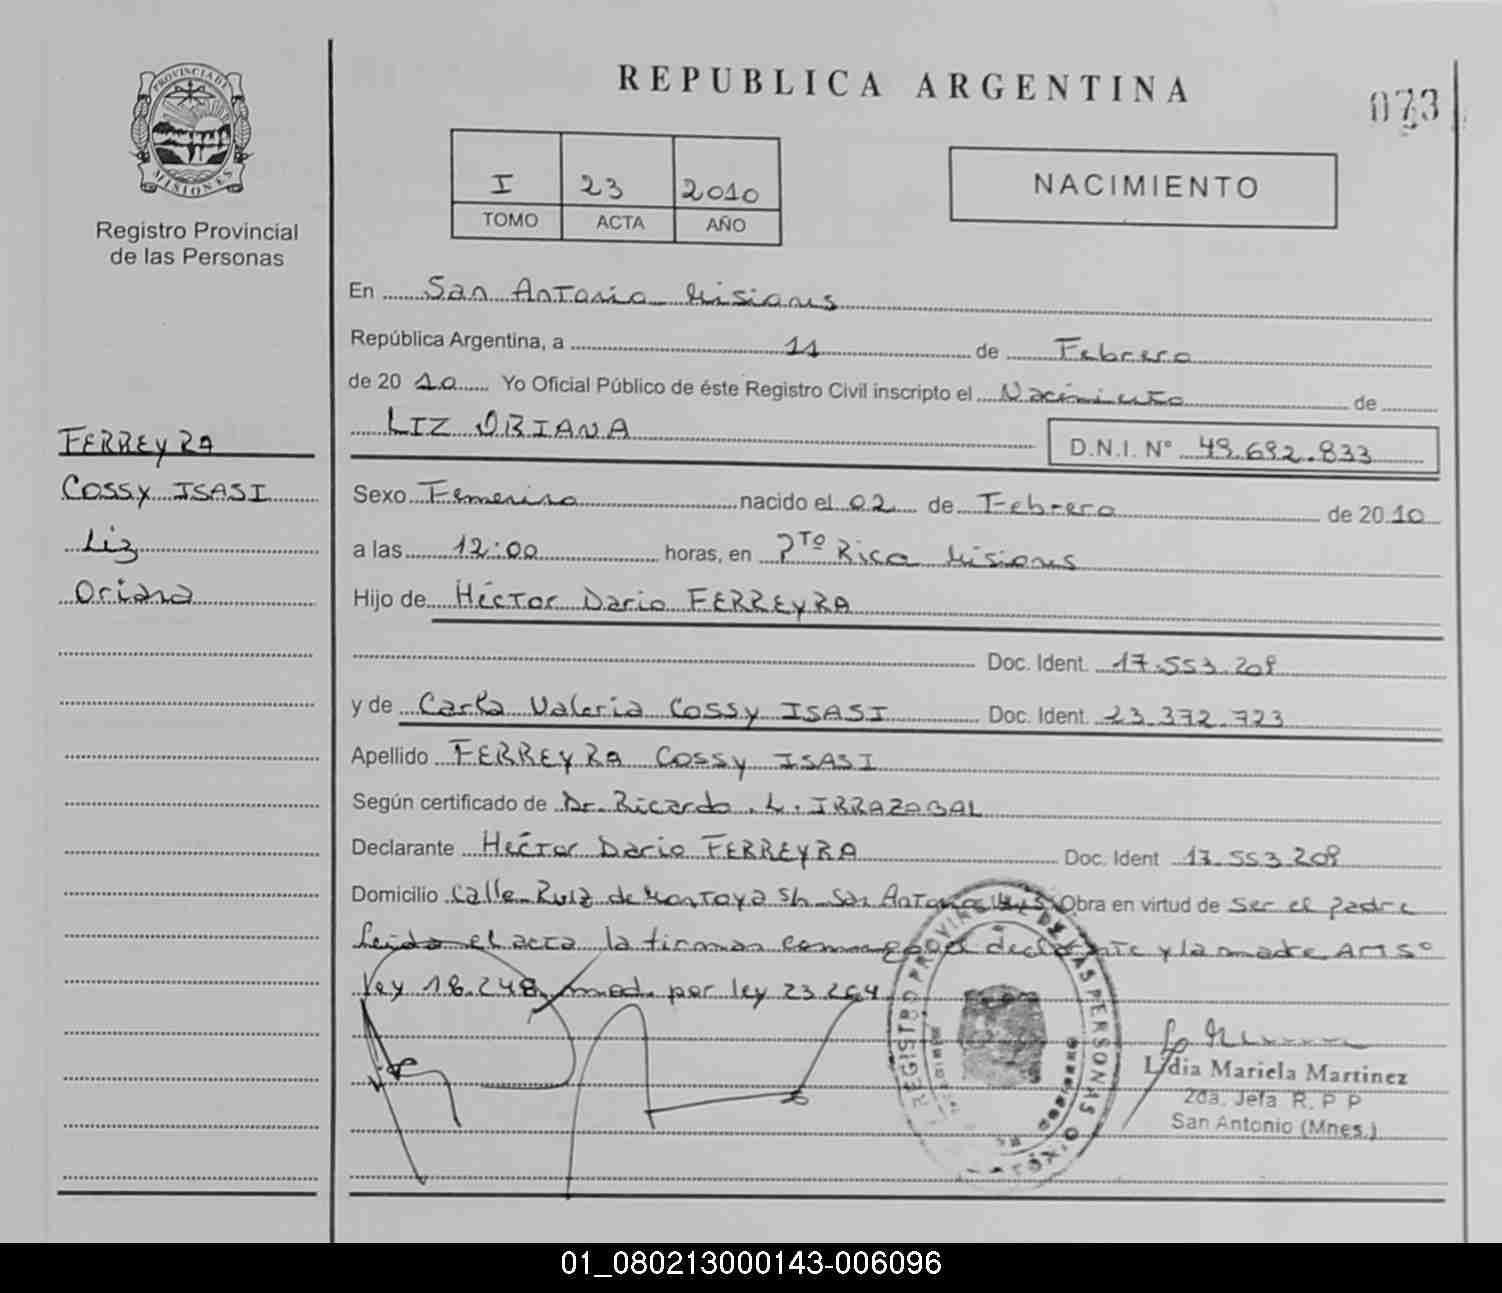 PROVINCIA DE
MISIONES
Registro Provincial
de las Personas
REPUBLICA ARGENTINA
073
I 23 2010
TOMO ACTA AÑO
NACIMIENTO
En San Antonio Misiones
República Argentina, a 11 de Febrero
de 20 10 Yo Oficial Público de éste Registro Civil inscripto el Nacimiento de
LIZ ORIANA D.N.I. N° 49.692.833
FERREYRA
COSSY ISASI
Liz
Oriana
Sexo Femenino nacido el 02 de Febrero de 20 10
a las 12:00 horas, en Pto Rico Misiones
Hijo de Héctor Dario FERREYRA
Doc. Ident. 17.553.208
y de Carla Valeria COSSY ISASI Doc. Ident. 23.372.723
Apellido FERREYRA COSSY ISASI
Según certificado de Dr. Ricardo L. IRRAZABAL
Declarante Héctor Dario FERREYRA Doc. Ident 17.553.208
Domicilio Calle Ruiz de Montoya S/n San Antonio Mnes Obra en virtud de ser el padre
Leida el acta la firman conmigo el declarante y la madre Art 5°
Ley 18.248 mod. por ley 23.264
REGISTRO PROVINCIAL DE LAS PERSONAS
Lidia Mariela Martinez
2da. Jefa R. P P
San Antonio (Mnes.)
01_080213000143-006096